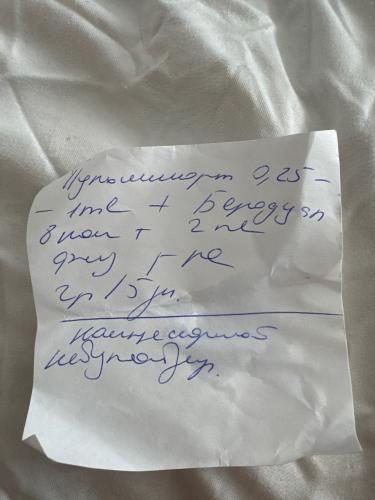 Пульмикорт 0,25 -
- 1ml + Беродуал
8 кап + 2 ml
физ р-ра
2р / 5 дн.
компрессорной
небулайзер.